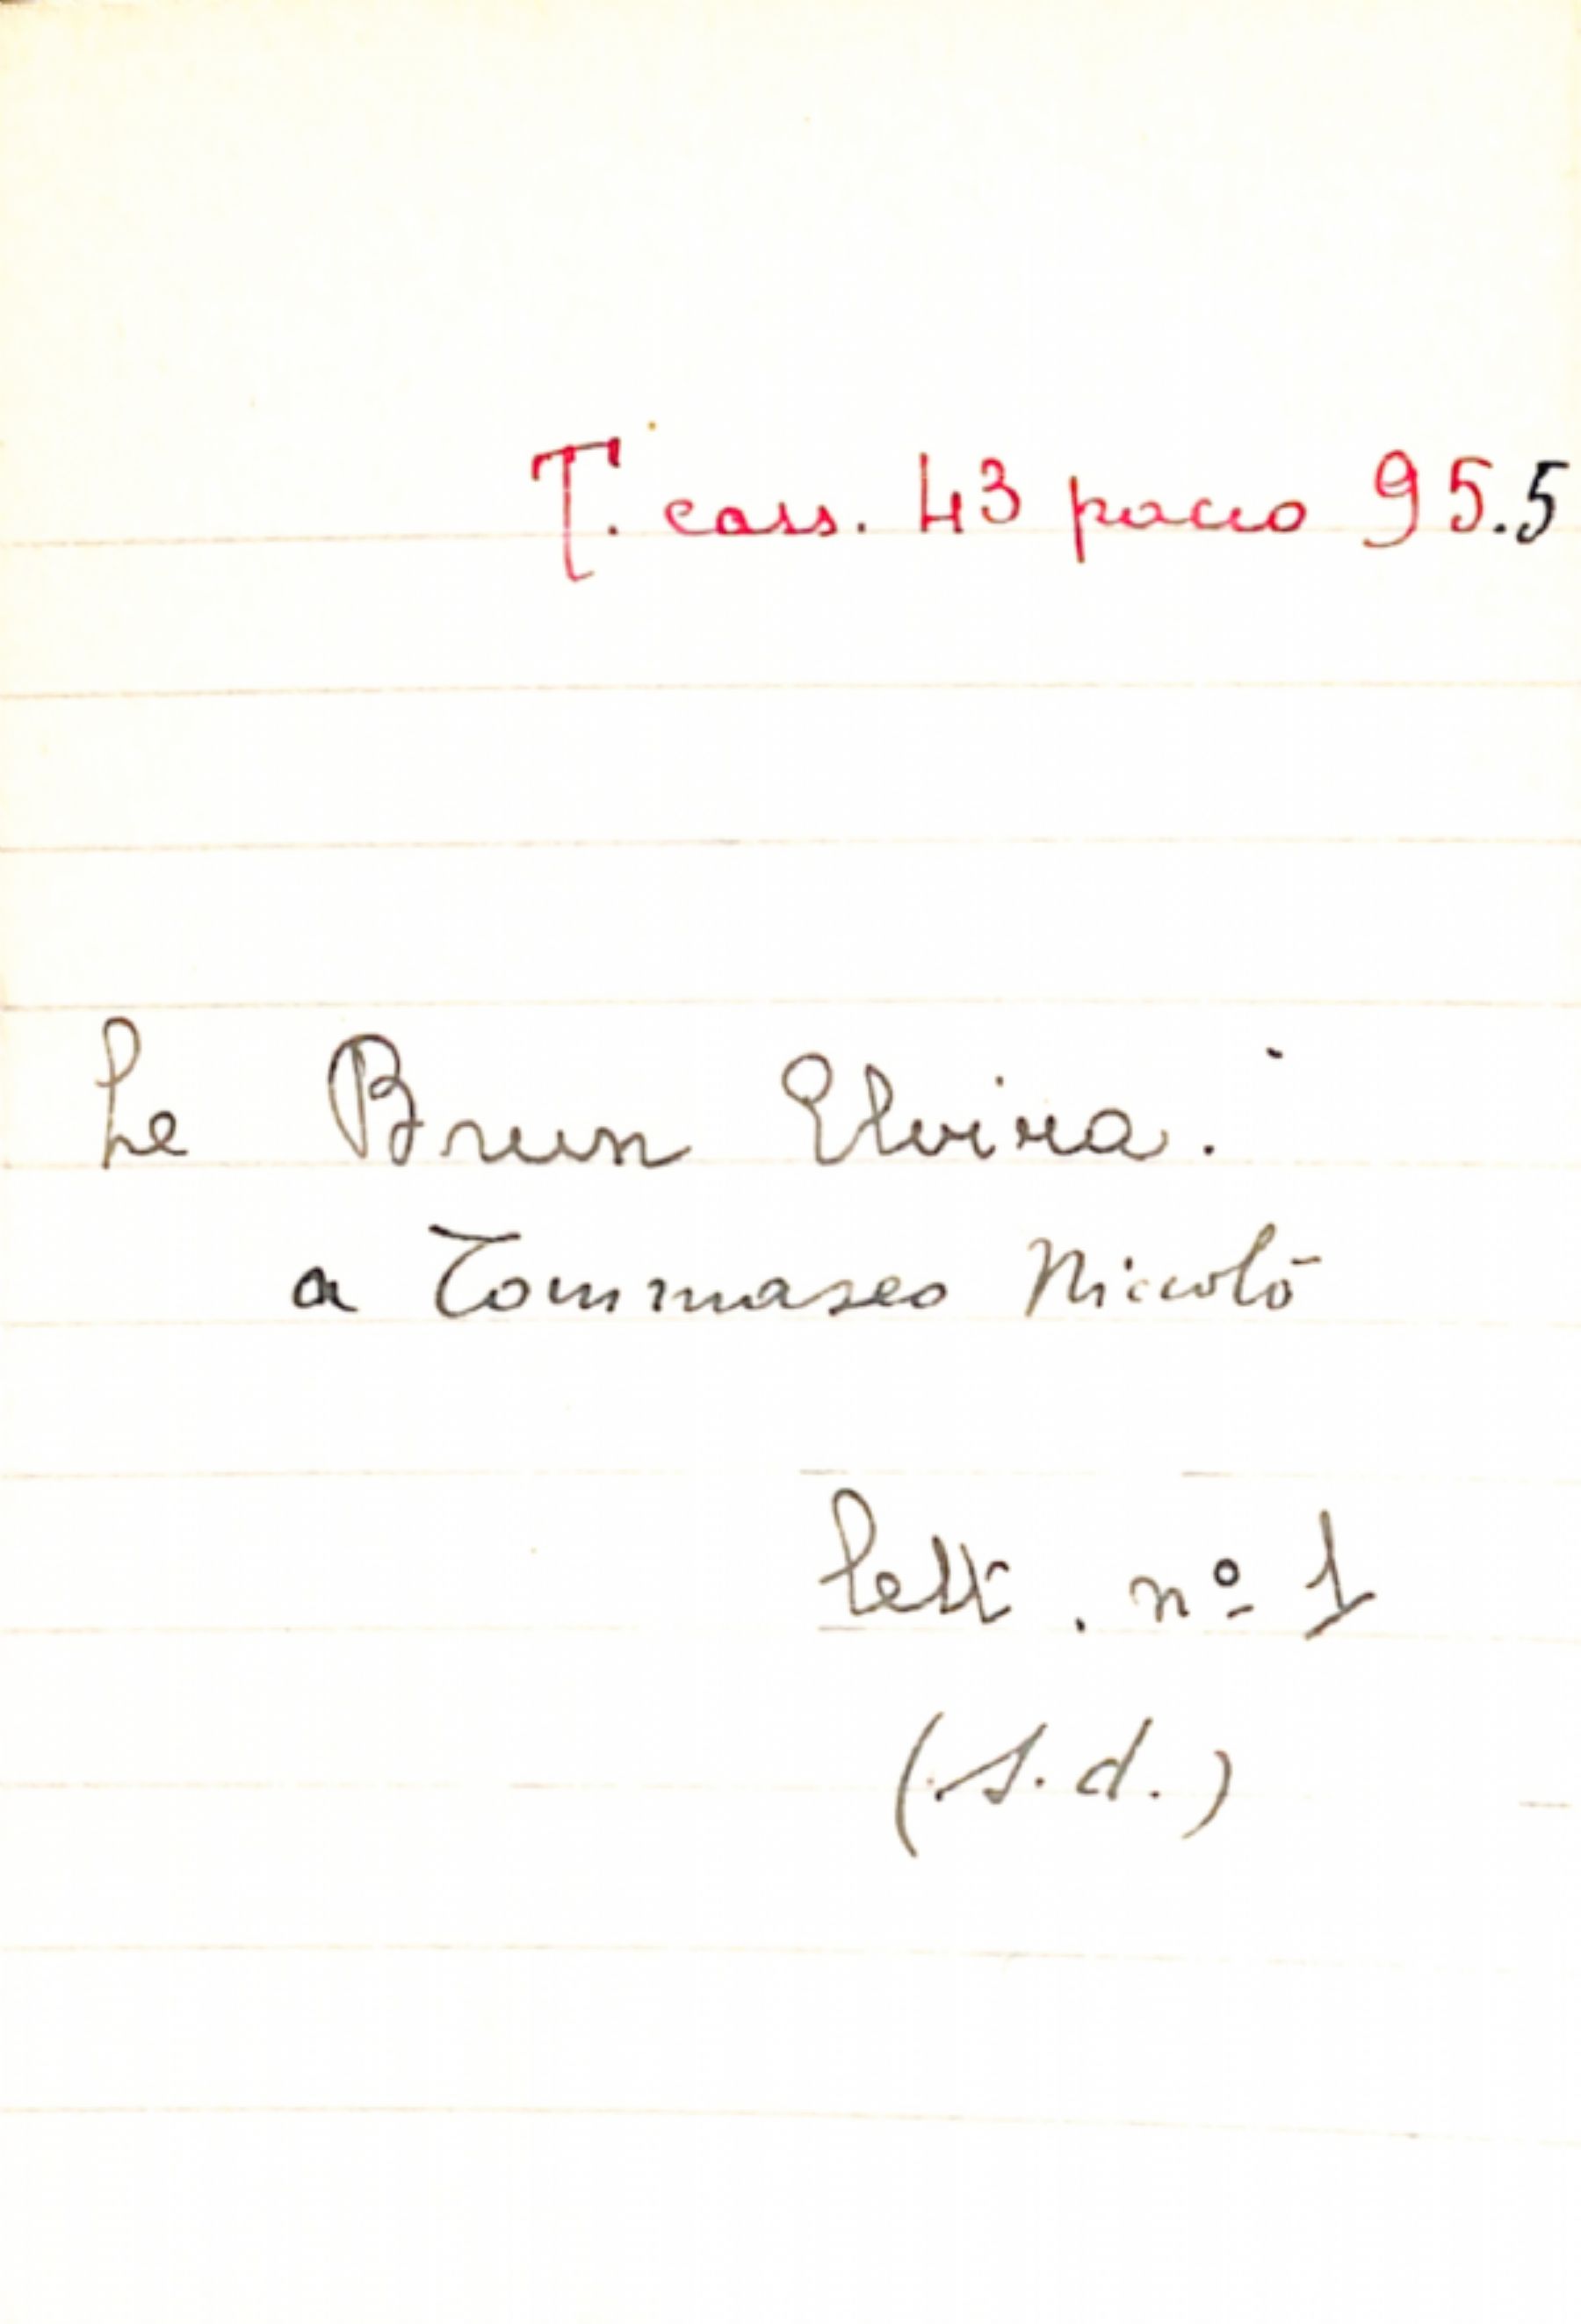 T. cass. 43 pacco 95.5
Le Brun Elvira.
a Tommaseo Niccolò
lett. nº 1
(s.d.)